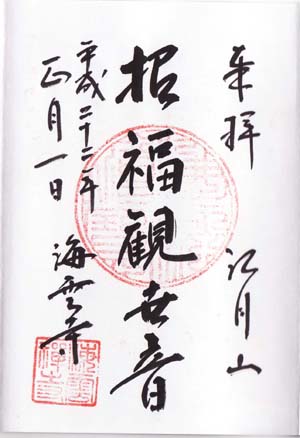 奉拝
江月山
招福観世音
平成二十二年
正月一日
海雲寺